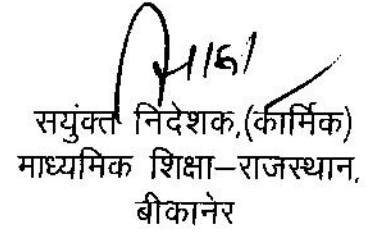 सयुंक्त निदेशक,(कार्मिक)
माध्यमिक शिक्षा–राजस्थान,
बीकानेर